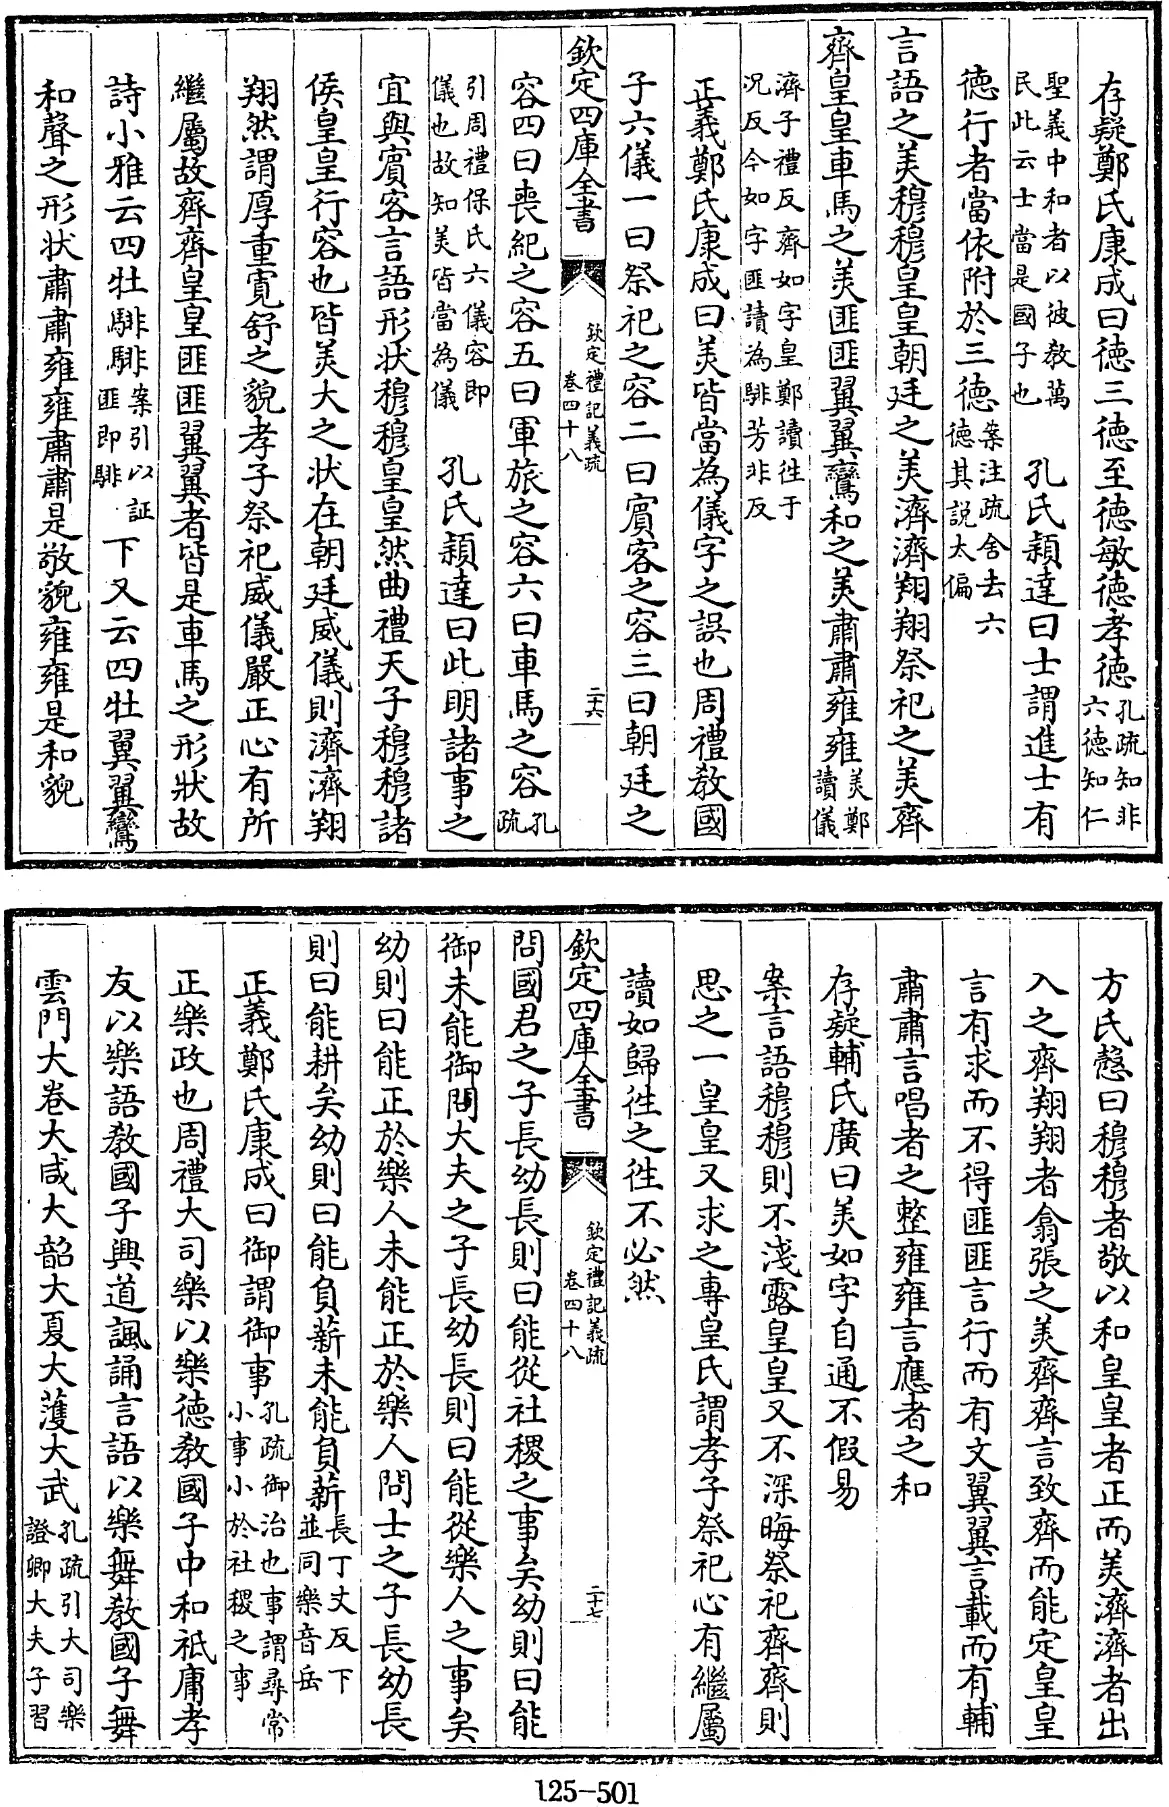 存疑鄭氏康成曰徳三徳至徳敏徳孝徳孔疏知非六徳知仁
聖義中和者以彼教萬民此云士當是國子也 孔氏穎達曰士謂進士有
徳行者當依附於三徳案注疏舍去六徳其説太偏
言語之美穆穆皇皇朝廷之美濟濟翔翔祭祀之美齊
齊皇皇車馬之美匪匪翼翼鸞和之美肅肅雍雍美鄭讀儀
濟子禮反齊如字皇鄭讀徃于況反今如字匪讀為騑芳非反
正義鄭氏康成曰美皆當為儀字之誤也周禮教國
子六儀一曰祭祀之容二曰賓客之容三曰朝廷之
欽定四庫全書 欽定禮記義疏 卷四十八 二十六
容四曰喪紀之容五曰軍旅之容六曰車馬之容孔疏
引周禮保氏六儀容即儀也故知美皆當為儀 孔氏穎達曰此明諸事之
宜與賓客言語形状穆穆皇皇然曲禮天子穆穆諸
侯皇皇行容也皆美大之状在朝廷威儀則濟濟翔
翔然謂厚重寛舒之貌孝子祭祀威儀嚴正心有所
繼屬故齊齊皇皇匪匪翼翼者皆是車馬之形狀故
詩小雅云四牡騑騑案引以証匪即騑下又云四牡翼翼鸞
和聲之形状肅肅雍雍肅肅是敬貌雍雍是和貌
方氏慤曰穆穆者敬以和皇皇者正而美濟濟者出
入之齊翔翔者翕張之美齊齊言致齊而能定皇皇
言有求而不得匪匪言行而有文翼翼言載而有輔
肅肅言唱者之整雍雍言應者之和
存疑輔氏廣曰美如字自通不假易
案言語穆穆則不淺露皇皇又不深晦祭祀齊齊則
思之一皇皇又求之專皇氏謂孝子祭祀心有繼屬
讀如歸徃之徃不必然
欽定四庫全書 欽定禮記義疏 卷四十八 二十七
問國君之子長幼長則曰能從社稷之事矣幼則曰能
御未能御問大夫之子長幼長則曰能從樂人之事矣
幼則曰能正於樂人未能正於樂人問士之子長幼長
則曰能耕矣幼則曰能負薪未能負薪長丁丈反下並同樂音岳
正義鄭氏康成曰御謂御事孔疏御治也事謂尋常小事小於社稷之事
正樂政也周禮大司樂以樂徳教國子中和祇庸孝
友以樂語教國子興道諷誦言語以樂舞教國子舞
雲門大卷大咸大韶大夏大濩大武孔疏引大司樂證卿大夫子習
125-501